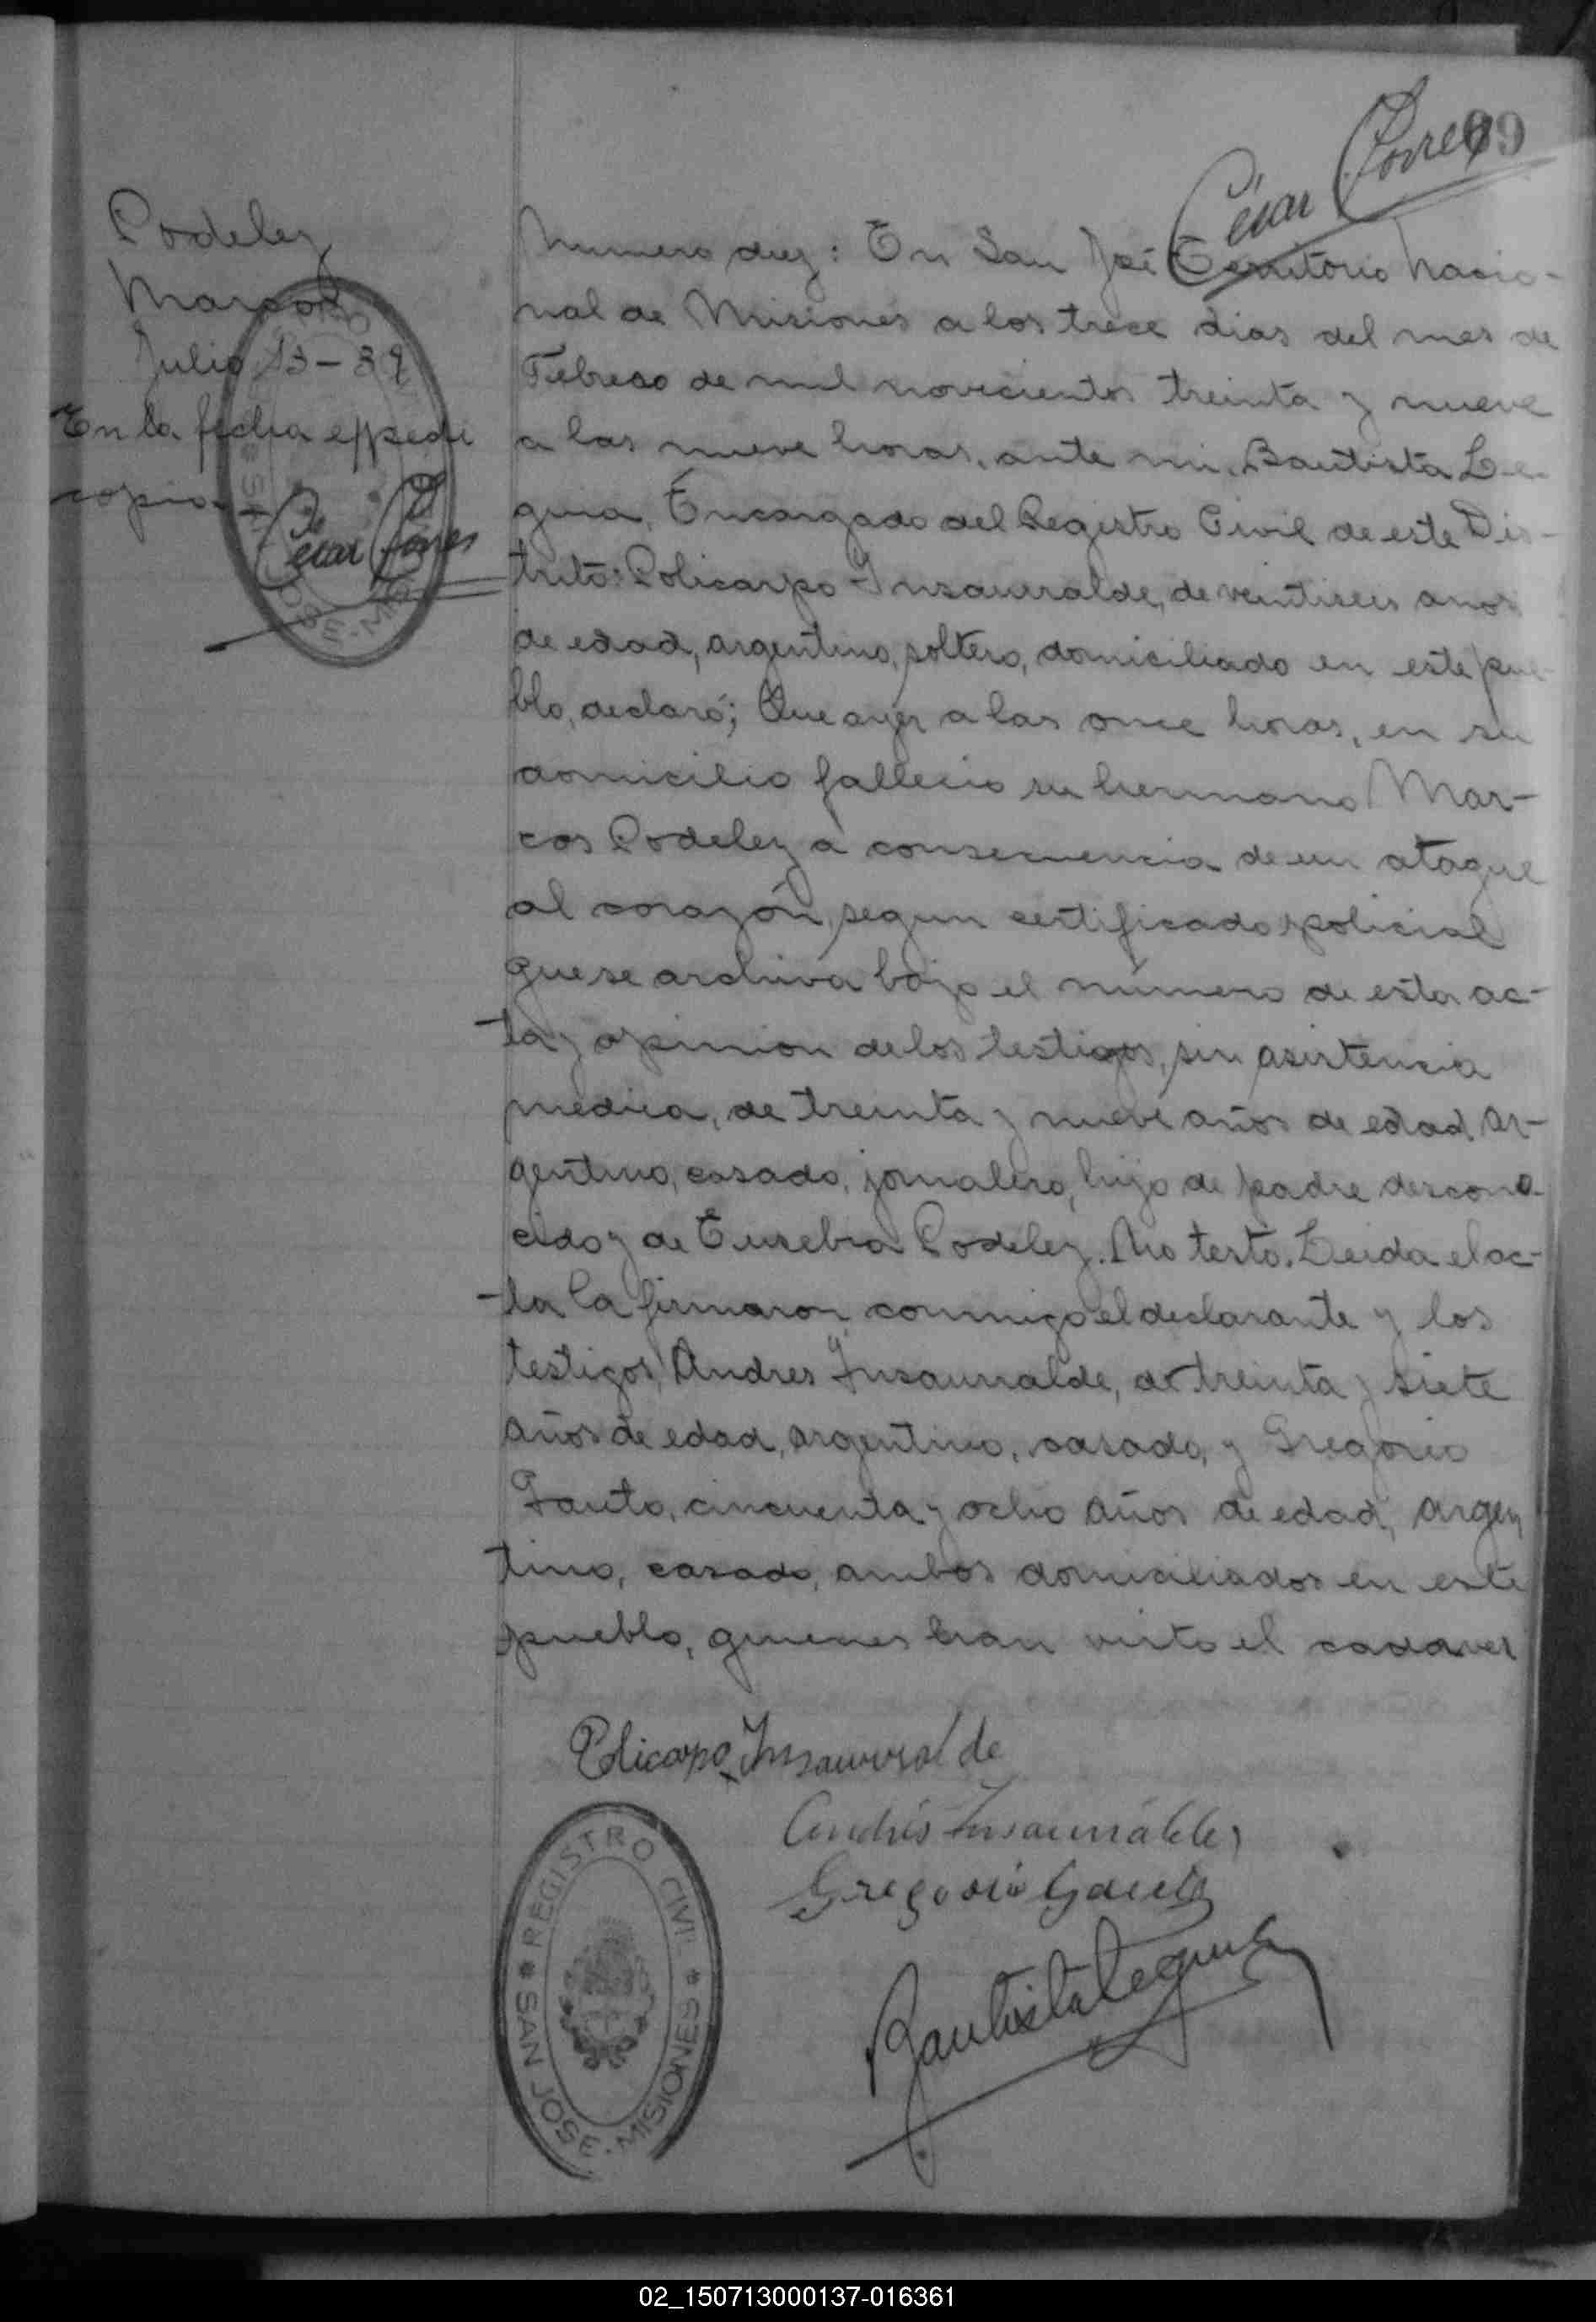 César Torres
99
Podeley
Marcos
Julio 13-39
En la fecha expedi
copia.
César Torres
Numero diez: En San José Territorio Nacio-
nal de Misiones a los trece dias del mes de
Febrero de mil novecientos treinta y nueve
a las nueve horas, ante mi, Bautista Le-
guia, Encargado del Registro Civil de este Dis-
trito: Policarpo Insaurralde, de veintiseis años
de edad, argentino, soltero, domiciliado en este pue-
blo, declaró; Que ayer a las once horas, en su
domicilio fallecio su hermano Mar-
cos Podeley a consecuencia de un ataque
al corazón, segun certificado policial
que se archiva bajo el número de esta ac-
ta y opinion de los testigos, sin asistencia
medica, de treinta y nueve años de edad, ar-
gentino, casado, jornalero, hijo de padre descono-
cido y de Eusebia Podeley. No testó. Leida el ac-
ta la firmaron conmigo el declarante y los
testigos, Andres Insaurralde, de treinta y siete
años de edad, argentino, casado, y Gregorio
cincuenta y ocho años de edad, argen
tino, casado, ambos domiciliados en este
pueblo, quienes han visto el cadaver
Policarpo Insaurralde
Andrés Insaurralde
Gregorio
Bautista Leguia
REGISTRO CIVIL
SAN JOSE - MISIONES
02_150713000137-016361